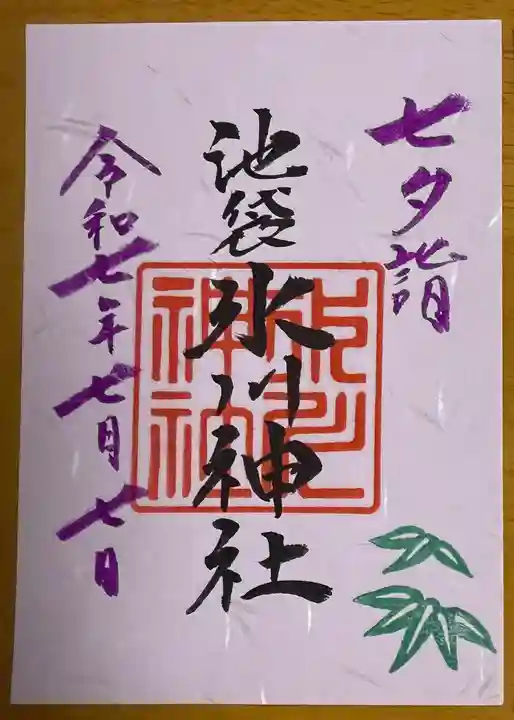 七夕詣
池袋氷川神社
令和七年七月七日